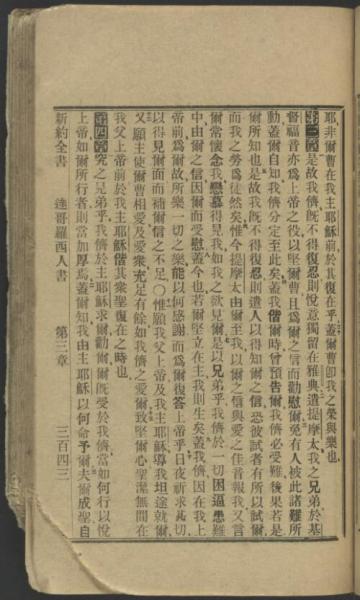 耶非爾曹在我主耶穌前於其復在乎蓋爾曹卽我之榮與樂也
第三章是故我儕旣不得復忍則悅意獨留在雅典遣提摩太我之兄弟於基
督福音亦爲上帝之役以堅爾曹且爲爾之信而勸慰爾免有人被此諸難所
動蓋爾自知我儕分定至此矣蓋我偕爾時曾預告爾我儕必受難後果若是
爾所知也是故我旣不得復忍則遣人以得知爾之信恐彼試者有所以試爾
而我之勞爲徒然矣惟今提摩太由爾至我以爾之信與愛之佳音報我又言
爾常懷念我懸慕得見我如我之欲見爾是以兄弟乎我儕於一切困逼患難
中由爾之信因爾而受慰蓋今也若爾堅立在主我則生矣蓋我儕因在我上
帝前爲爾故所樂一切之樂能以何感謝而爲爾復答上帝乎日夜祈求甚切
以得見爾面而補爾信之不足○惟願我父上帝及我主耶穌導我坦途就爾
又願主使爾曹相愛及愛衆充足有餘如我儕之愛爾致堅爾心聖潔無間在
我父上帝前於我主耶穌偕其衆聖復在之時也
第四章究之兄弟乎我儕於主耶穌求爾勸爾爾旣受於我儕當如何行以悅
上帝如爾所行者則當加厚焉蓋爾知我由主耶穌以何命予爾夫爾成聖自
新約全書 達哥羅西人書 第三章 三百四三